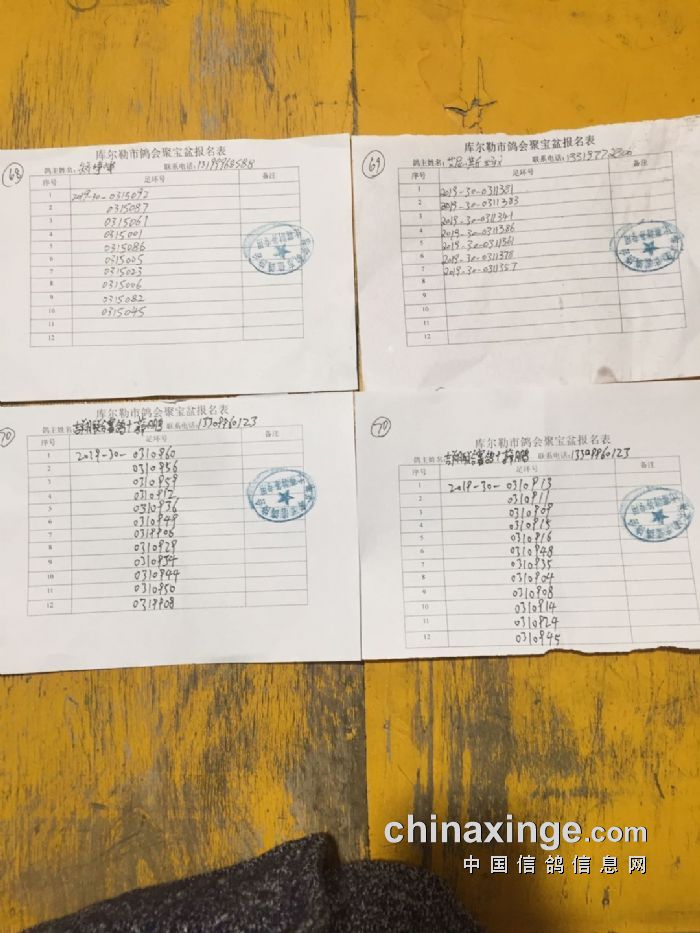 68
库尔勒市鸽会聚宝盆报名表
鸽主姓名: 联系电话:13199968588
序号 足环号 备注
1 2019-30-0315092
2 0315087
3 0315061
4 0315001
5 0315086
6 0315005
7 0315023
8 0315006
9 0315082
10 0315045
11
12
69
库尔勒市鸽会聚宝盆报名表
鸽主姓名: 联系电话:
序号 足环号 备注
1 2019-30-0311331
2 2019-30-0311383
3 2019-30-0311341
4 2019-30-0311386
5 2019-30-0311361
6 2019-30-0311378
7 2019-30-0311357
8
9
10
11
12
70
库尔勒市鸽会聚宝盆报名表
鸽主姓名: 联系电话:13309960123
序号 足环号 备注
1 2019-30-0310960
2 0310956
3 0310959
4 0310912
5 0310936
6 0310949
7 0310906
8 0310929
9 0310934
10 0310944
11 0310950
12 0319908
70
库尔勒市鸽会聚宝盆报名表
鸽主姓名: 联系电话:13309960123
序号 足环号 备注
1 2019-30-0310913
2 0310911
3 0310909
4 0310915
5 0310916
6 0310948
7 0310935
8 0310904
9 0310908
10 0310914
11 0310924
12 0310945
chinaxinge.com
中国信鸽信息网